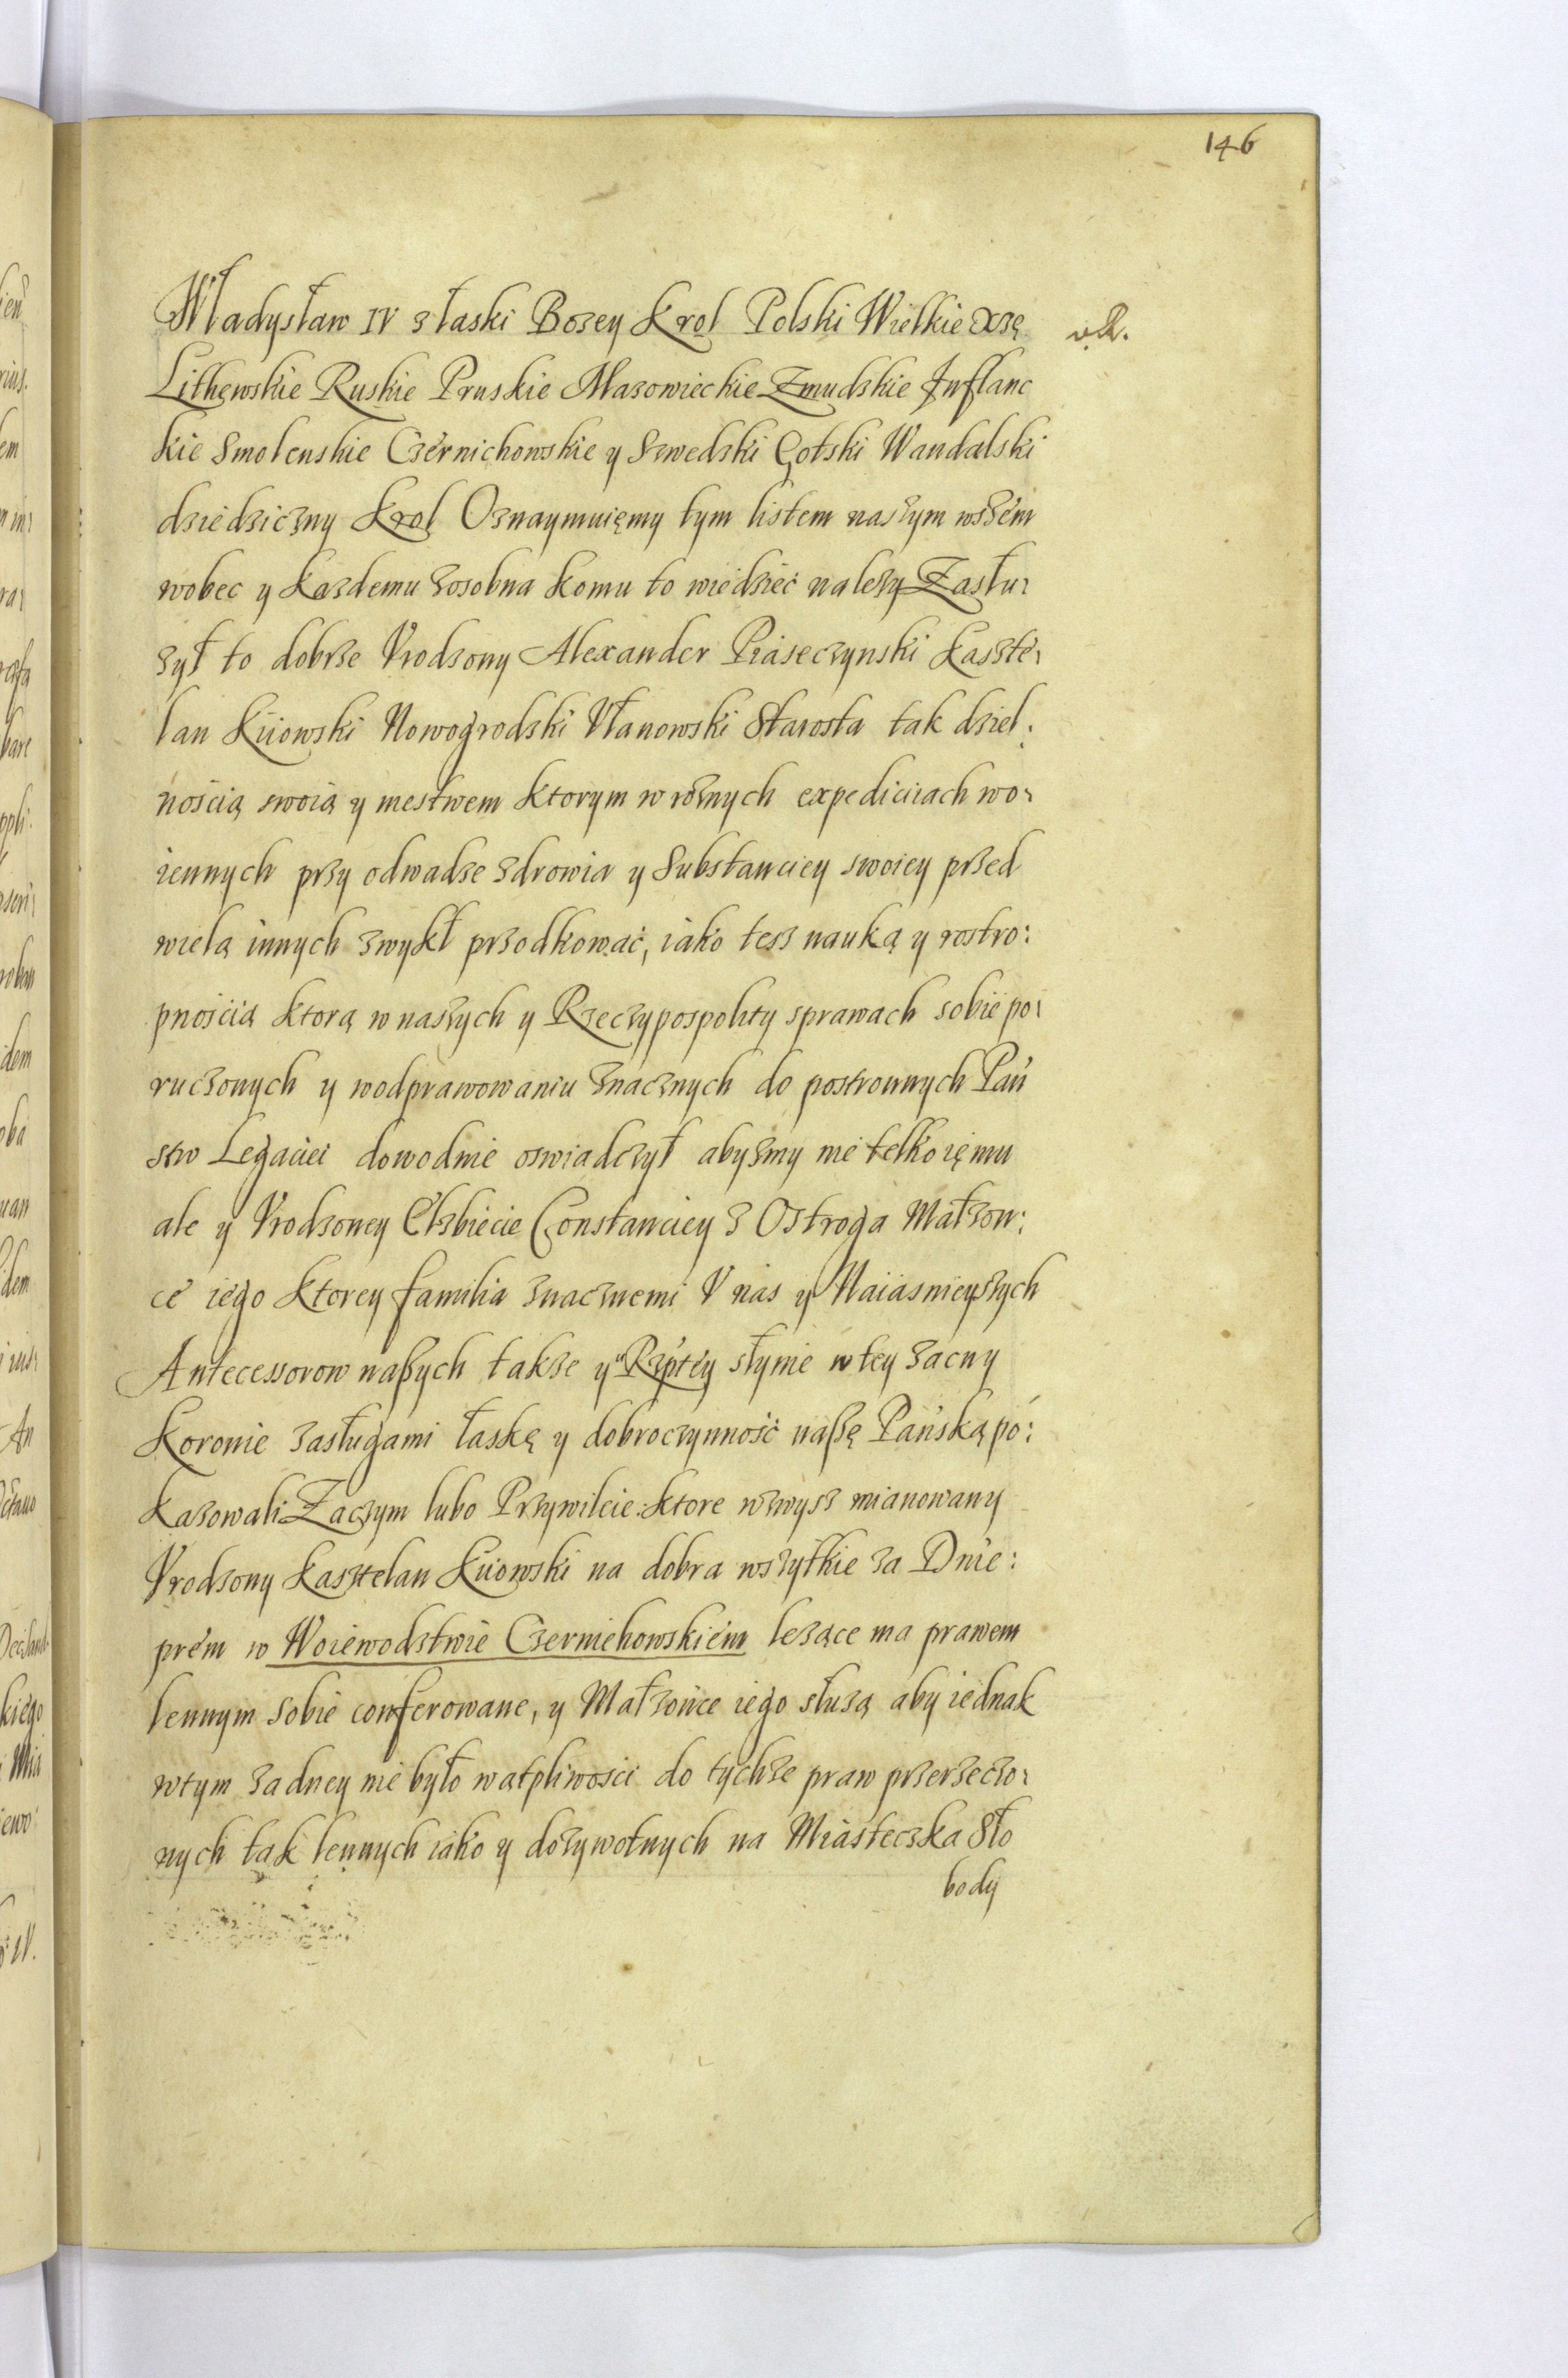 146
Władysław IV z łaski Bozey Krol Polski Wielkie Xzę
Lithewskie Ruskie Pruskie Mazowieckie Zmudzkie Inflanc
kie Smolenskie Czernichowskie y Szwedzki Gotski Wandalski
dziedziczny Krol Oznaymuięmy tym listem naszym wszem
wobec y kazdemu zosobna komu to wiedzieć nalezy Zasłu:
zył to dobrze Vrodzony Alexander Piaseczynski kaszte:
lan Kiiowski Nowogrodski Vłanowski Starosta tak dziel:
noscią swoią y mestwem ktorym w roznych expediciiach wo:
iennych przy odwadze zdrowia y Substanciey swoiey przed
wielą innych zwykł przodkować, iako tesz nauką y rostro:
pnoscią ktorą w naszych y Rzeczypospolity sprawach sobie po:
ruczonych y wodprawowaniu znacznych do postronnych Pań
stw Legaciei dowodnie oswiadczył abyzmy nie telko ięmu
ale y Vrodzoney Elzbiecie Constanciey z Ostroga Małzon:
ce iego ktorey familia znacznemi V nas y Naiiasnieyszych
Antecessorow naszych takze y Rzptey słynie w tey zacny
Koronie zasługami łaskę y dobroczynność naszę Pańską po:
kazowali Zaczym lubo Przywileie ktore wzwysz mianowany
Vrodzony kasztelan Kiiowski na dobra wszytkie za Dnie:
prem w Woiewodztwie Czerniehowskiem lezące ma prawem
lennym sobie conferowane, y Małzonce iego słuzą aby iednak
wtym zadney nie było watpliwosci do tychze praw przerzeczo:
nych tak lennych iako y dozywotnych na Miasteczka Sło
body